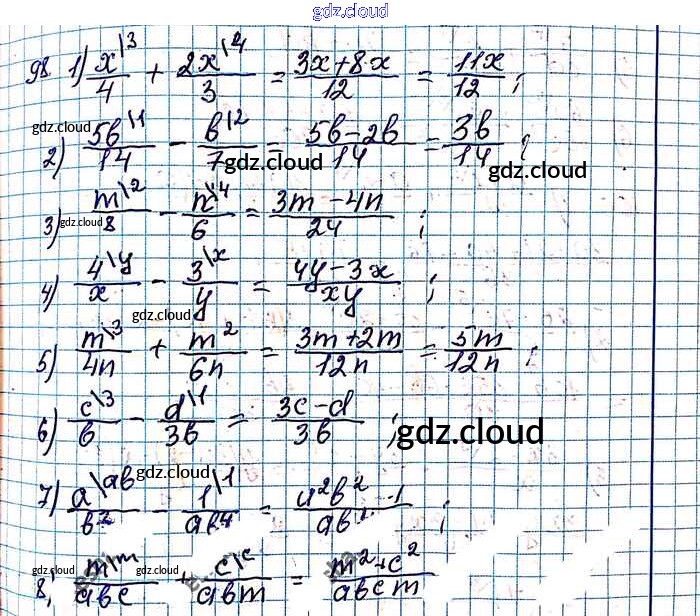 gdz.cloud
98. 1) x\3/4 + 2x\4/3 = 3x+8x/12 = 11x/12 ;
gdz.cloud
2) 5b\1/14 - b\2/7 = 5b-2b/14 = 3b/14 ;
gdz.cloud gdz.cloud
3) m\2/8 - n\4/6 = 3m-4n/24 ;
gdz.cloud
4) 4\y/x - 3\x/y = 4y-3x/xy ;
gdz.cloud
5) m\3/4n + m\2/6n = 3m+2m/12n = 5m/12n ;
gdz.cloud
6) c\3/b - d\1/3b = 3c-d/3b ;
gdz.cloud gdz.cloud
7) a\ab/b² - 1\1/ab⁴ = a²b²-1/ab ;
gdz.cloud gdz.cloud
8) m\m/abc + c\c/abm = m²+c²/abcm